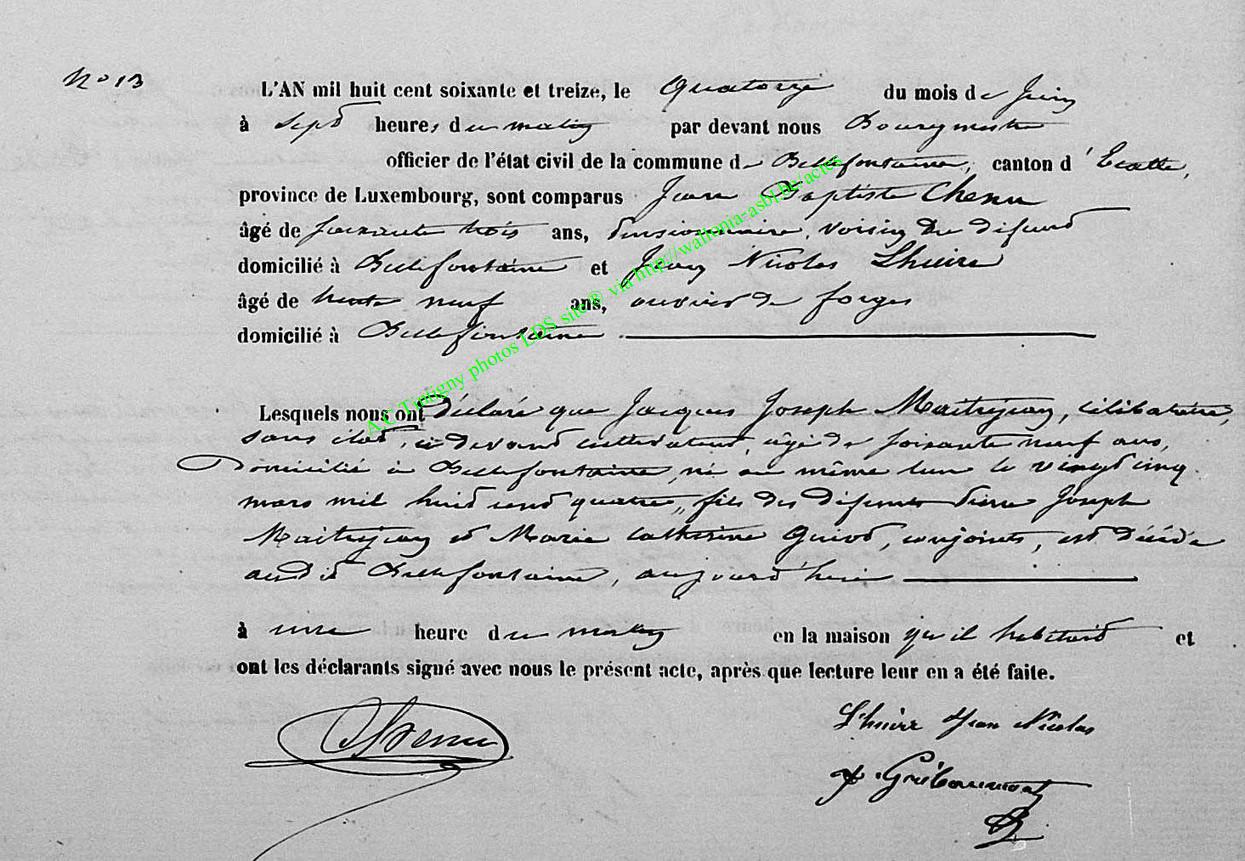 No 13
L'AN mil huit cent soixante et treize, le Quatorze du mois de Juin
à sept heures du matin par devant nous Bourgmestre
officier de l'état civil de la commune de Bellefontaine, canton d'Etalle,
province de Luxembourg, sont comparus Jean Baptiste Chenu
âgé de soixante trois ans, pensionnaire, voisin du défunt
domicilié à Bellefontaine et Jean Nicolas Lhuire
âgé de trente neuf ans, ouvrier de forges
domicilié à Bellefontaine
Lesquels nous ont déclaré que Jacques Joseph Maitrejean, célibataire,
sans état, ci devant cultivateur, âgé de soixante neuf ans,
Domicilié à Bellefontaine, né au même lieu le vingt cinq
mars mil huit cent quatre, fils des défunts Pierre Joseph
Maitrejean et Marie Catherine Guiot, conjoints, est décédé
audit Bellefontaine, aujourd'hui
à une heure du matin en la maison qu'il habitait et
ont les déclarants signé avec nous le présent acte, après que lecture leur en a été faite.
Chenu
Lhuire Jean Nicolas
Gribaumont
AC Tintigny photos LDS site® via http://wallonia-asbl.be/actes